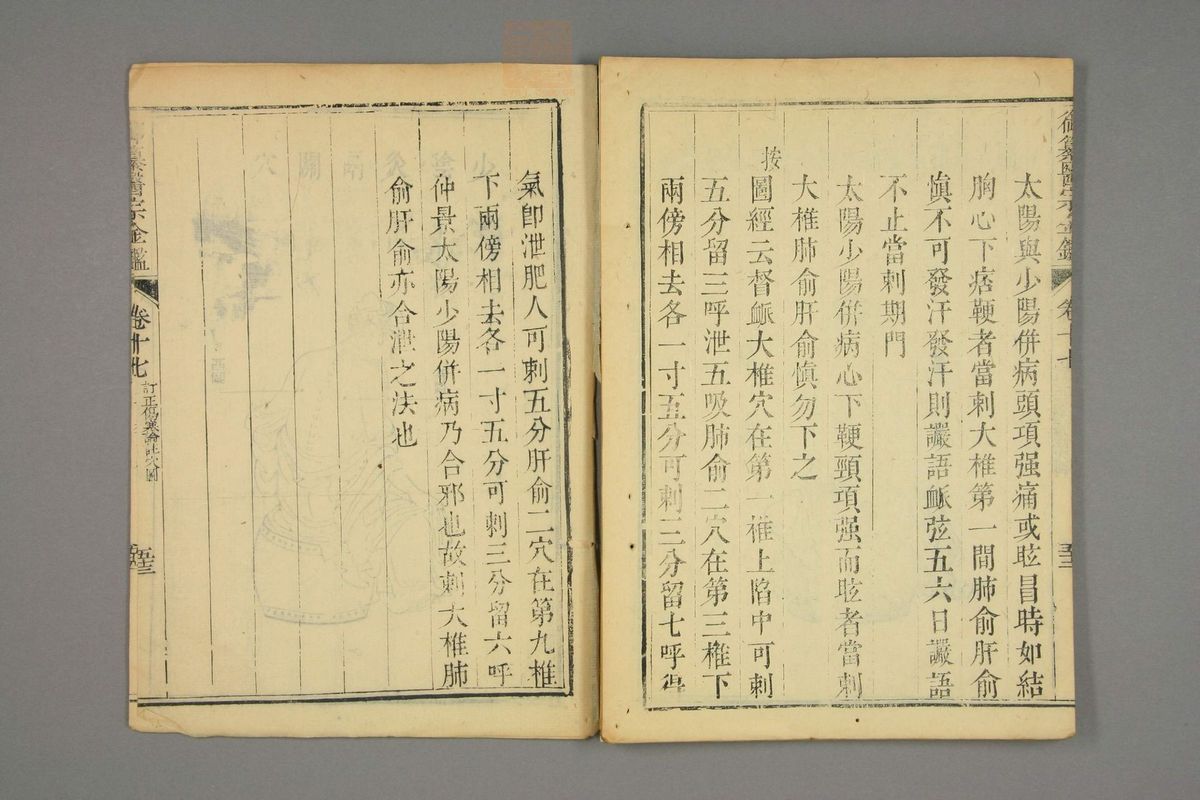 御纂醫宗金鑑 卷十七 五十三
太陽與少陽併病頭項强痛或眩冒時如結
胸心下痞鞕者當刺大椎第一間肺俞肝俞
愼不可發汗發汗則讝語䘑弦五六日讝語
不止當刺期門
太陽少陽併病心下鞕頸項强而眩者當刺
大椎肺俞肝俞愼勿下之
按
圖經云督䘑大椎穴在第一椎上陷中可刺
五分留三呼泄五吸肺俞二穴在第三椎下
兩傍相去各一寸五分可刺三分留七呼得
氣卽泄肥人可刺五分肝俞二穴在第九椎
下兩傍相去各一寸五分可刺三分留六呼
仲景太陽少陽併病乃合邪也故刺大椎肺
俞肝俞亦合泄之法也
纂醫宗金鑑 卷十七 訂正傷寒論註 五十三